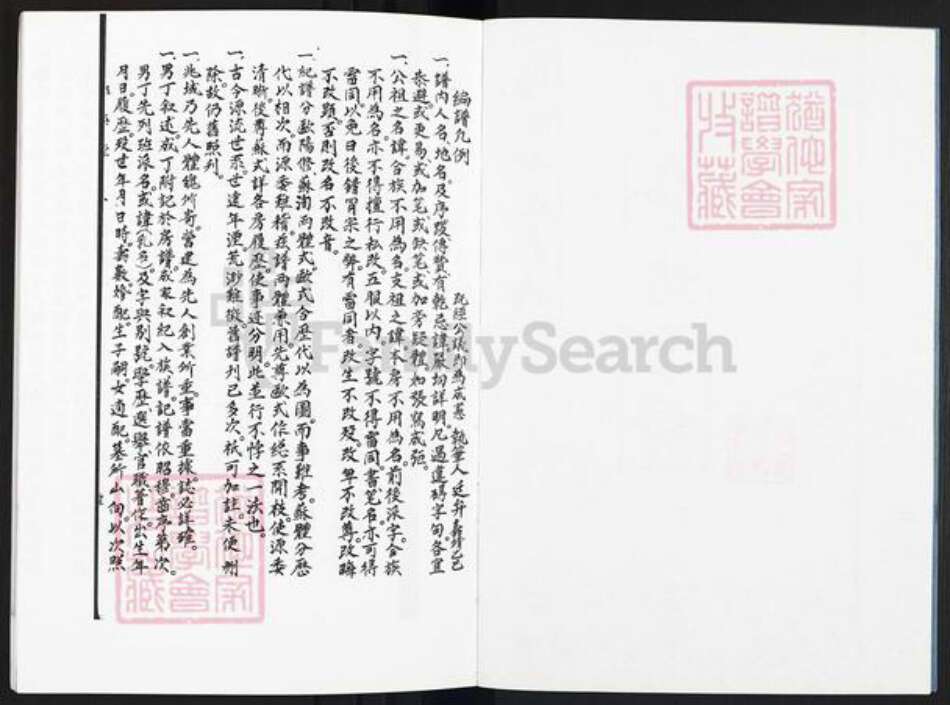 編譜凡例
既經公議即為成憲 執筆人廷升彝鋒己
一、譜內人名、地名、及序跋傳贊、有乾忌諱嚴切詳明、凡遇違碍字句各宜
恭避或更易或加筆或缺筆或加旁疑體如張寫成弡。
一、公祖之名諱合族不用為名支祖之諱本房不用為名前後派字合族
不用為名亦不得擅行私改五服以內字號不得雷同書筆名亦可得
雷同以免日後錯冒宗之弊有雷同者改生不改殁改卑不改尊改晦
不改顯否則改名不改音。
一、紀譜分歐陽修蘇洵兩體式。歐式合歷代以為圖。而事難考。蘇體分歷
代以相次。而源委難稽。茲譜兩體兼用。先尊歐式作總系開枝。使源委
清晰。後尊蘇式詳各房履歷。使事迹分明。此並行不悖之一法也。
一、古今源流世系。世遠年湮。荒渺難徵。舊譜列已多次。祇可加註。未便刪
除。故仍舊照列。
一、兆域乃先人體魄所寄。營建為先人創業所重。事當重據誌必詳確。
一、男丁叙述。成丁附記於房譜。成家叙紀入族譜。記譜依昭穆齒序第次。
男丁先列班派名。或諱(乳名)及字與別號學歷。選舉官職菁從出生年
月日。履歷。殁世年月日時。壽數。婚配。生子嗣女適配。墓所山向。以次照
猶他家
譜學會
收藏
猶他家
譜學會
收藏
FamilySearch